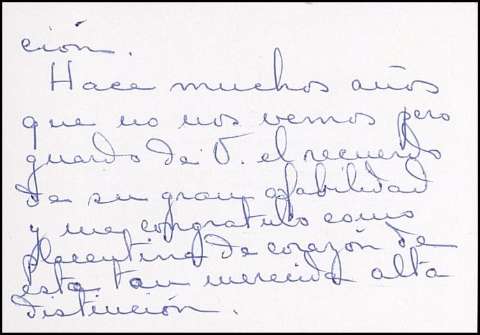 ción.
Hace muchos años
que no nos vemos pero
guardo de V. el recuerdo
de su gran afabilidad
y me congratulo como
placentina de corazón de
esta tan merecida alta
distinción.